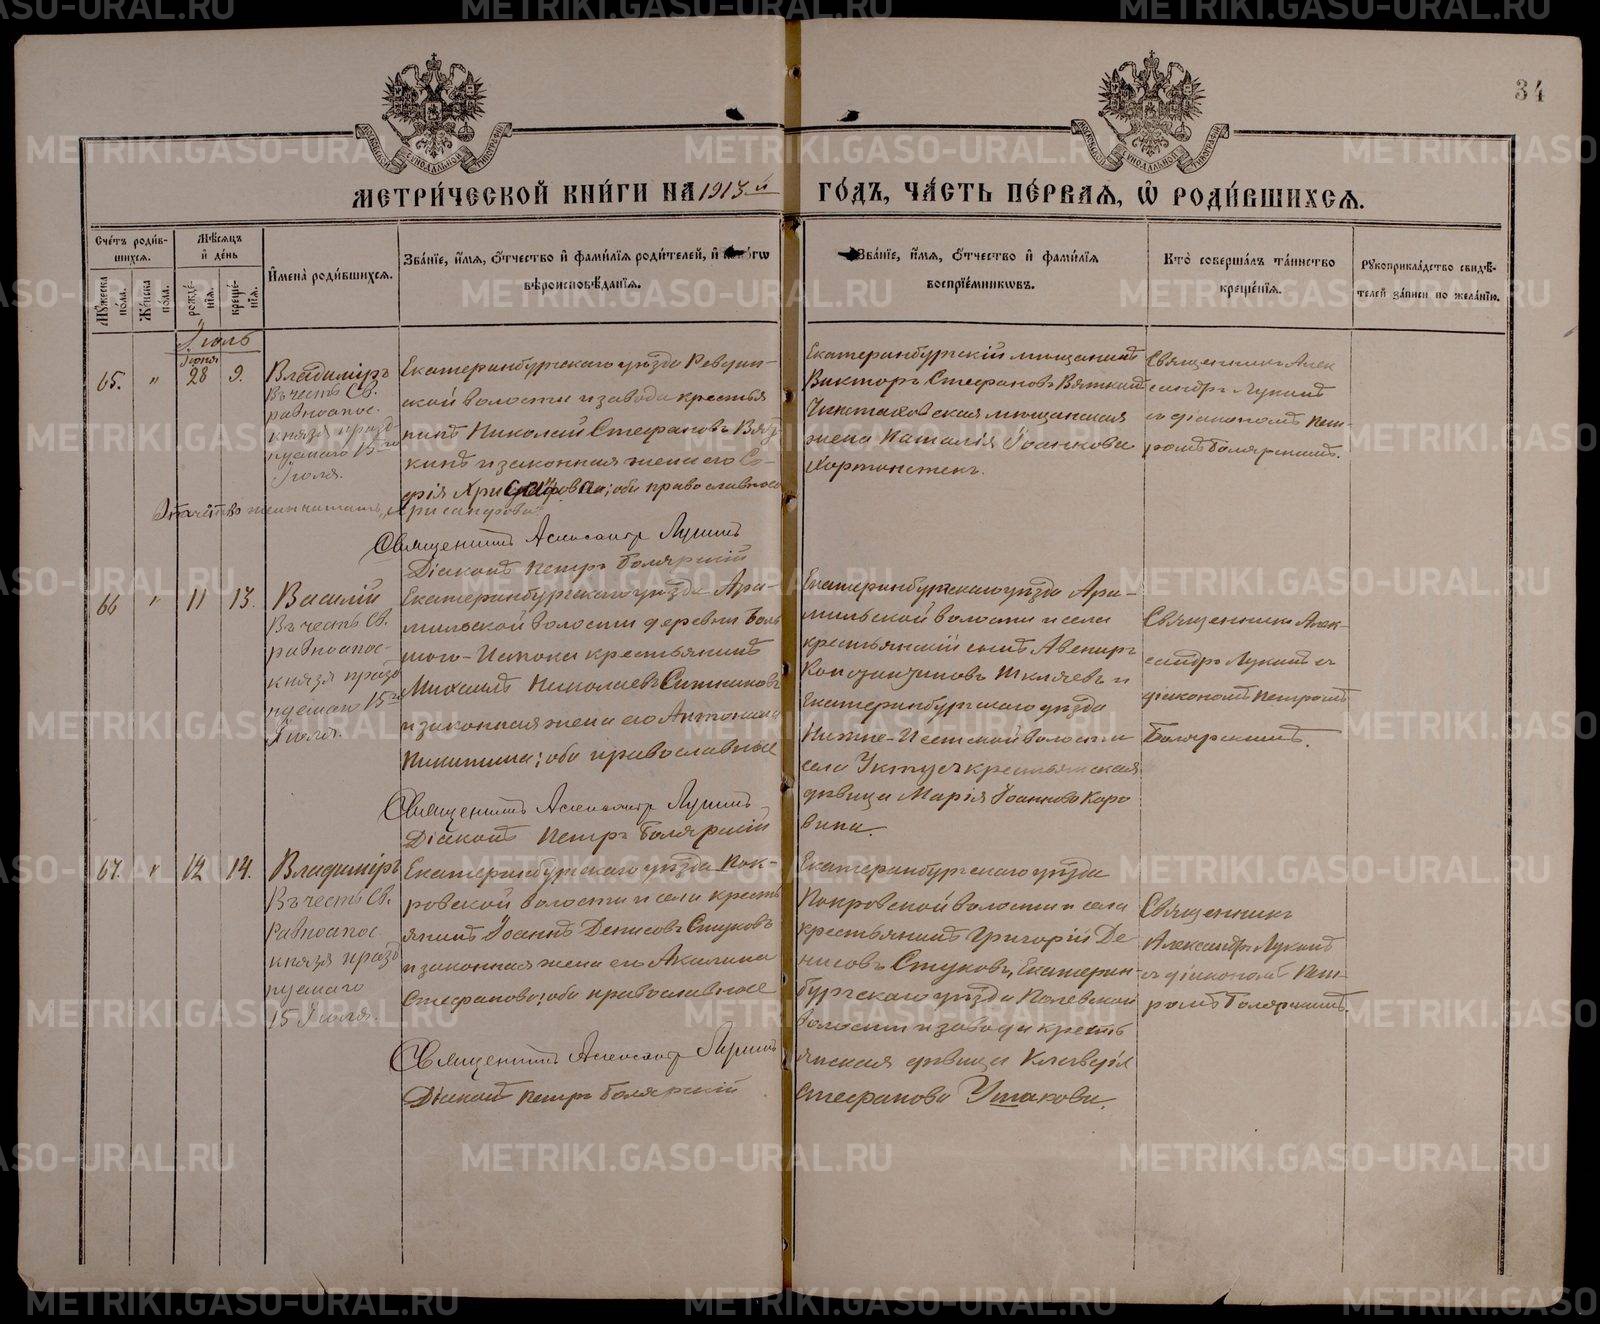 34
МЕТРИ́ЧЕСКОЙ КНИ́ГИ НА 1913 й ГО́ДЪ, ЧА́СТЬ ПЕ́РВАѦ, Ѽ РОДИ́ВШИХСѦ.
Сче́тъ роди́вшихсѧ.
Мꙋ́жеска по́ла.
Же́нска пола.
Мѣ́сѧцъ и҆ де́нь
рожде́нїѧ.
креще́нїѧ.
И҆мена̀ роди́вшихсѧ.
Зва́нїе, и҆́мѧ, ѻ҆́тчество и҆ фами́лїѧ роди́телей, и҆
вѣроисповѣ́данїѧ.
Зва́нїе, и҆́мѧ, ѻ҆́тчество и҆ фами́лїѧ
воспрїе́мникѡвъ.
Кто̀ соверша́лъ та́инство
креще́нїѧ.
Рꙋкоприкла́дство свидѣ́телей за́писи по жела́нїю.
Іюль
65.
"
Іюня
28
9.
Владиміръ
Въ честь Св.
равноапос.
князя празд-
нуемаго 15го
Іюля.
Екатеринбургскаго уѣзда Ревдин-
ской волости и завода крестья
нинъ Николай Стефановъ Вяз
кинъ и законная жена его Со-
фія; оба православнаго
Отчество жены читать „Хрисанфова"
Священникъ Александръ Лукинъ
Діаконъ Петръ Боярскій
Екатеринбургскій мѣщанинъ
Викторъ Стефановъ Вяткинъ
мѣщанская
жена Наталія Іоаннова
Священникъ Алек
сандръ Лукинъ
съ діакономъ Пет-
ромъ Боярскимъ.
66
"
11
13.
Василій
Въ честь Св.
равноапос-
князя празд
нуемаго 15го
Іюля.
Екатеринбургскаго уѣзда Ара-
мильской волости деревни Боль
шого-Истока крестьянинъ
Михаилъ Николаевъ Ситниковъ
и законная жена его Антонина
Никитина; оба православные
Священникъ Александръ Лукинъ
Діаконъ Петръ Боярскій
Екатеринбургскаго уѣзда Ара-
мильской волости и села
крестьянскій сынъ Авениръ
Константиновъ Шкляевъ и
Екатеринбургскаго уѣзда
Нижне-Исетской волости
села Уктусъ крестьянская
дѣвица Марія Іоаннова Коро
вина.
Священникъ Алек-
сандръ Лукинъ съ
діакономъ Петромъ
Боярскимъ.
67.
"
12
14.
Владиміръ
Въ честь Св.
Равноапос.
князя празд
нуемаго
15 Іюля.
Екатеринбургскаго уѣзда Пок-
ровской волости и села кресть
янинъ Іоаннъ Денисовъ Стуковъ
и законная жена его Акилина
Стефанова; оба православные
Священникъ Александръ Лукинъ
Діаконъ Петръ Боярскій
Екатеринбургскаго уѣзда
Покровской волости и села
крестьянинъ Григорій Де
нисовъ Стуковъ, Екатерин-
бургскаго уѣзда Полевской
волости и завода кресть
янская дѣвица Клавдія
Стефанова Ушакова.
Священникъ
Александръ Лукинъ
съ діакономъ Пет-
ромъ Боярскимъ.
METRIKI.GASO-URAL.RU